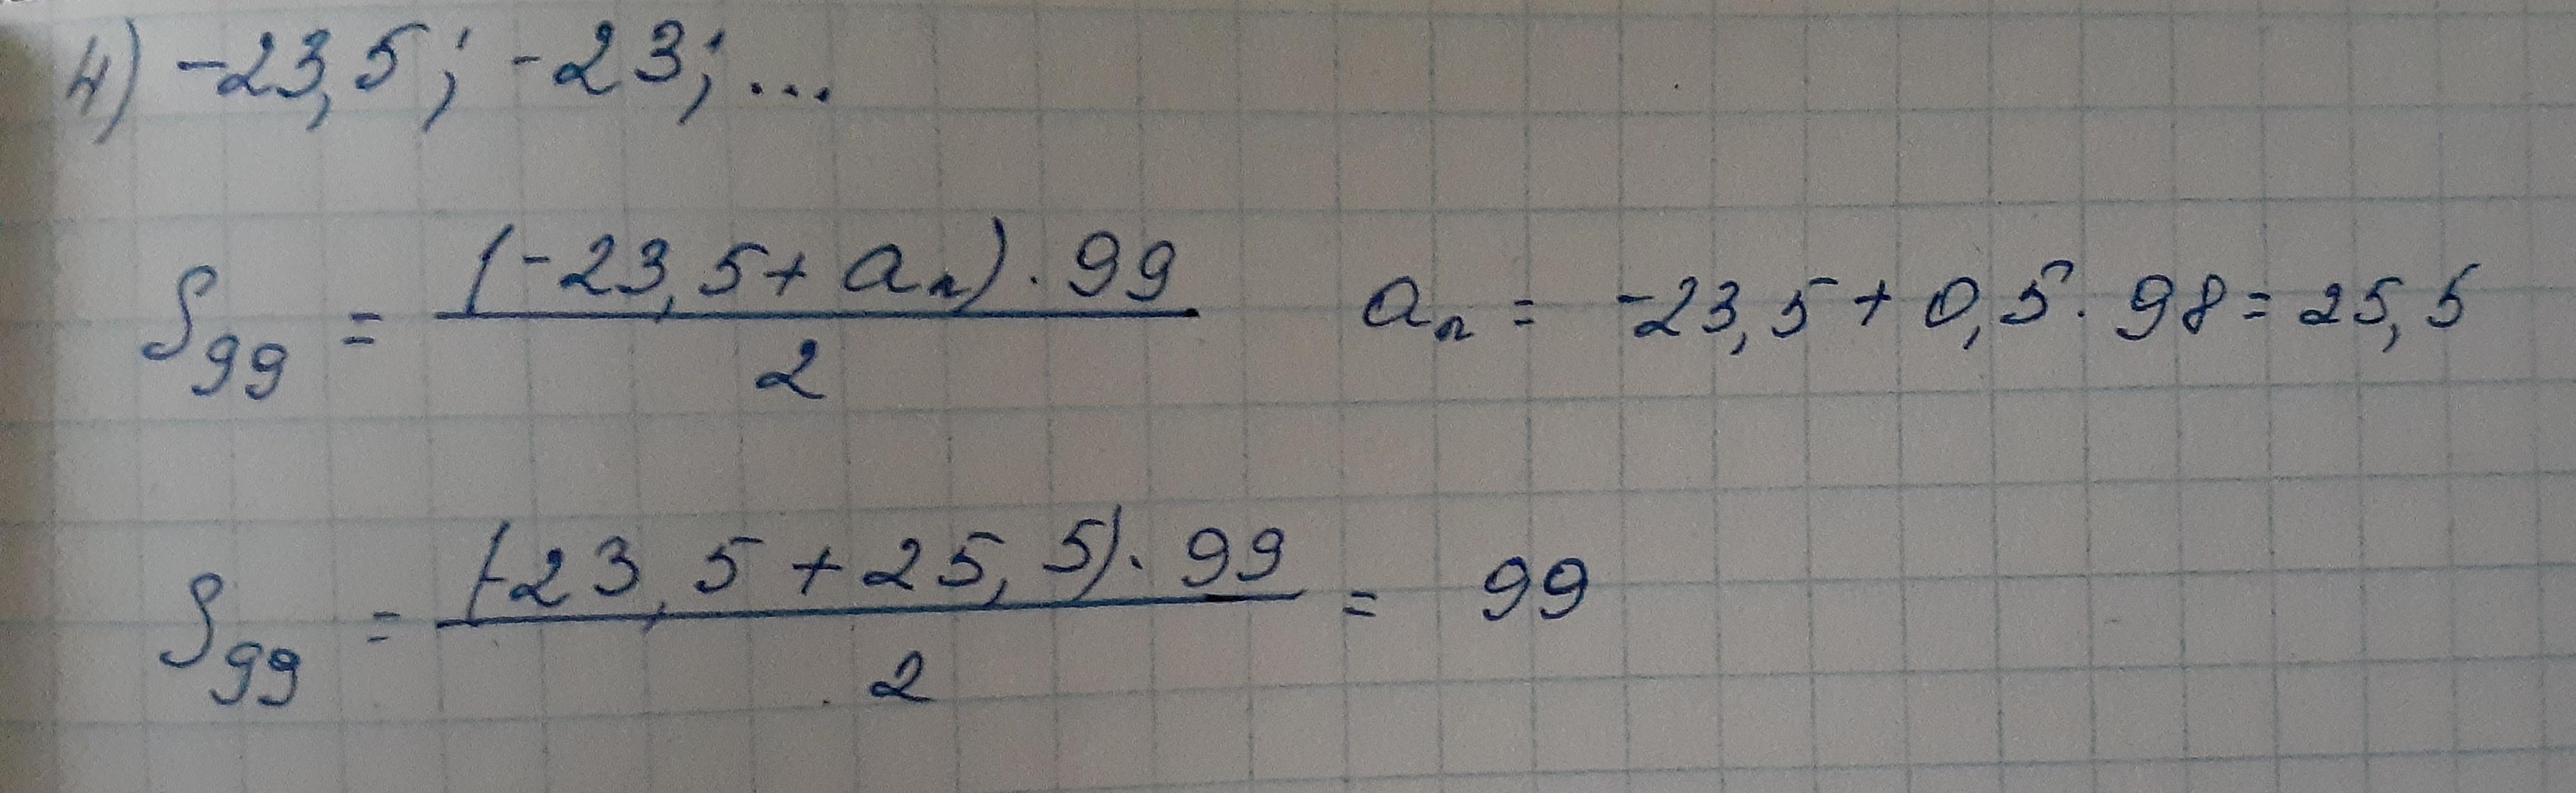 4) -23,5; -23; ...
S₉₉ = (-23,5 + aₙ) · 99 / 2 aₙ = -23,5 + 0,5 · 98 = 25,5
S₉₉ = (-23,5 + 25,5) · 99 / 2 = 99